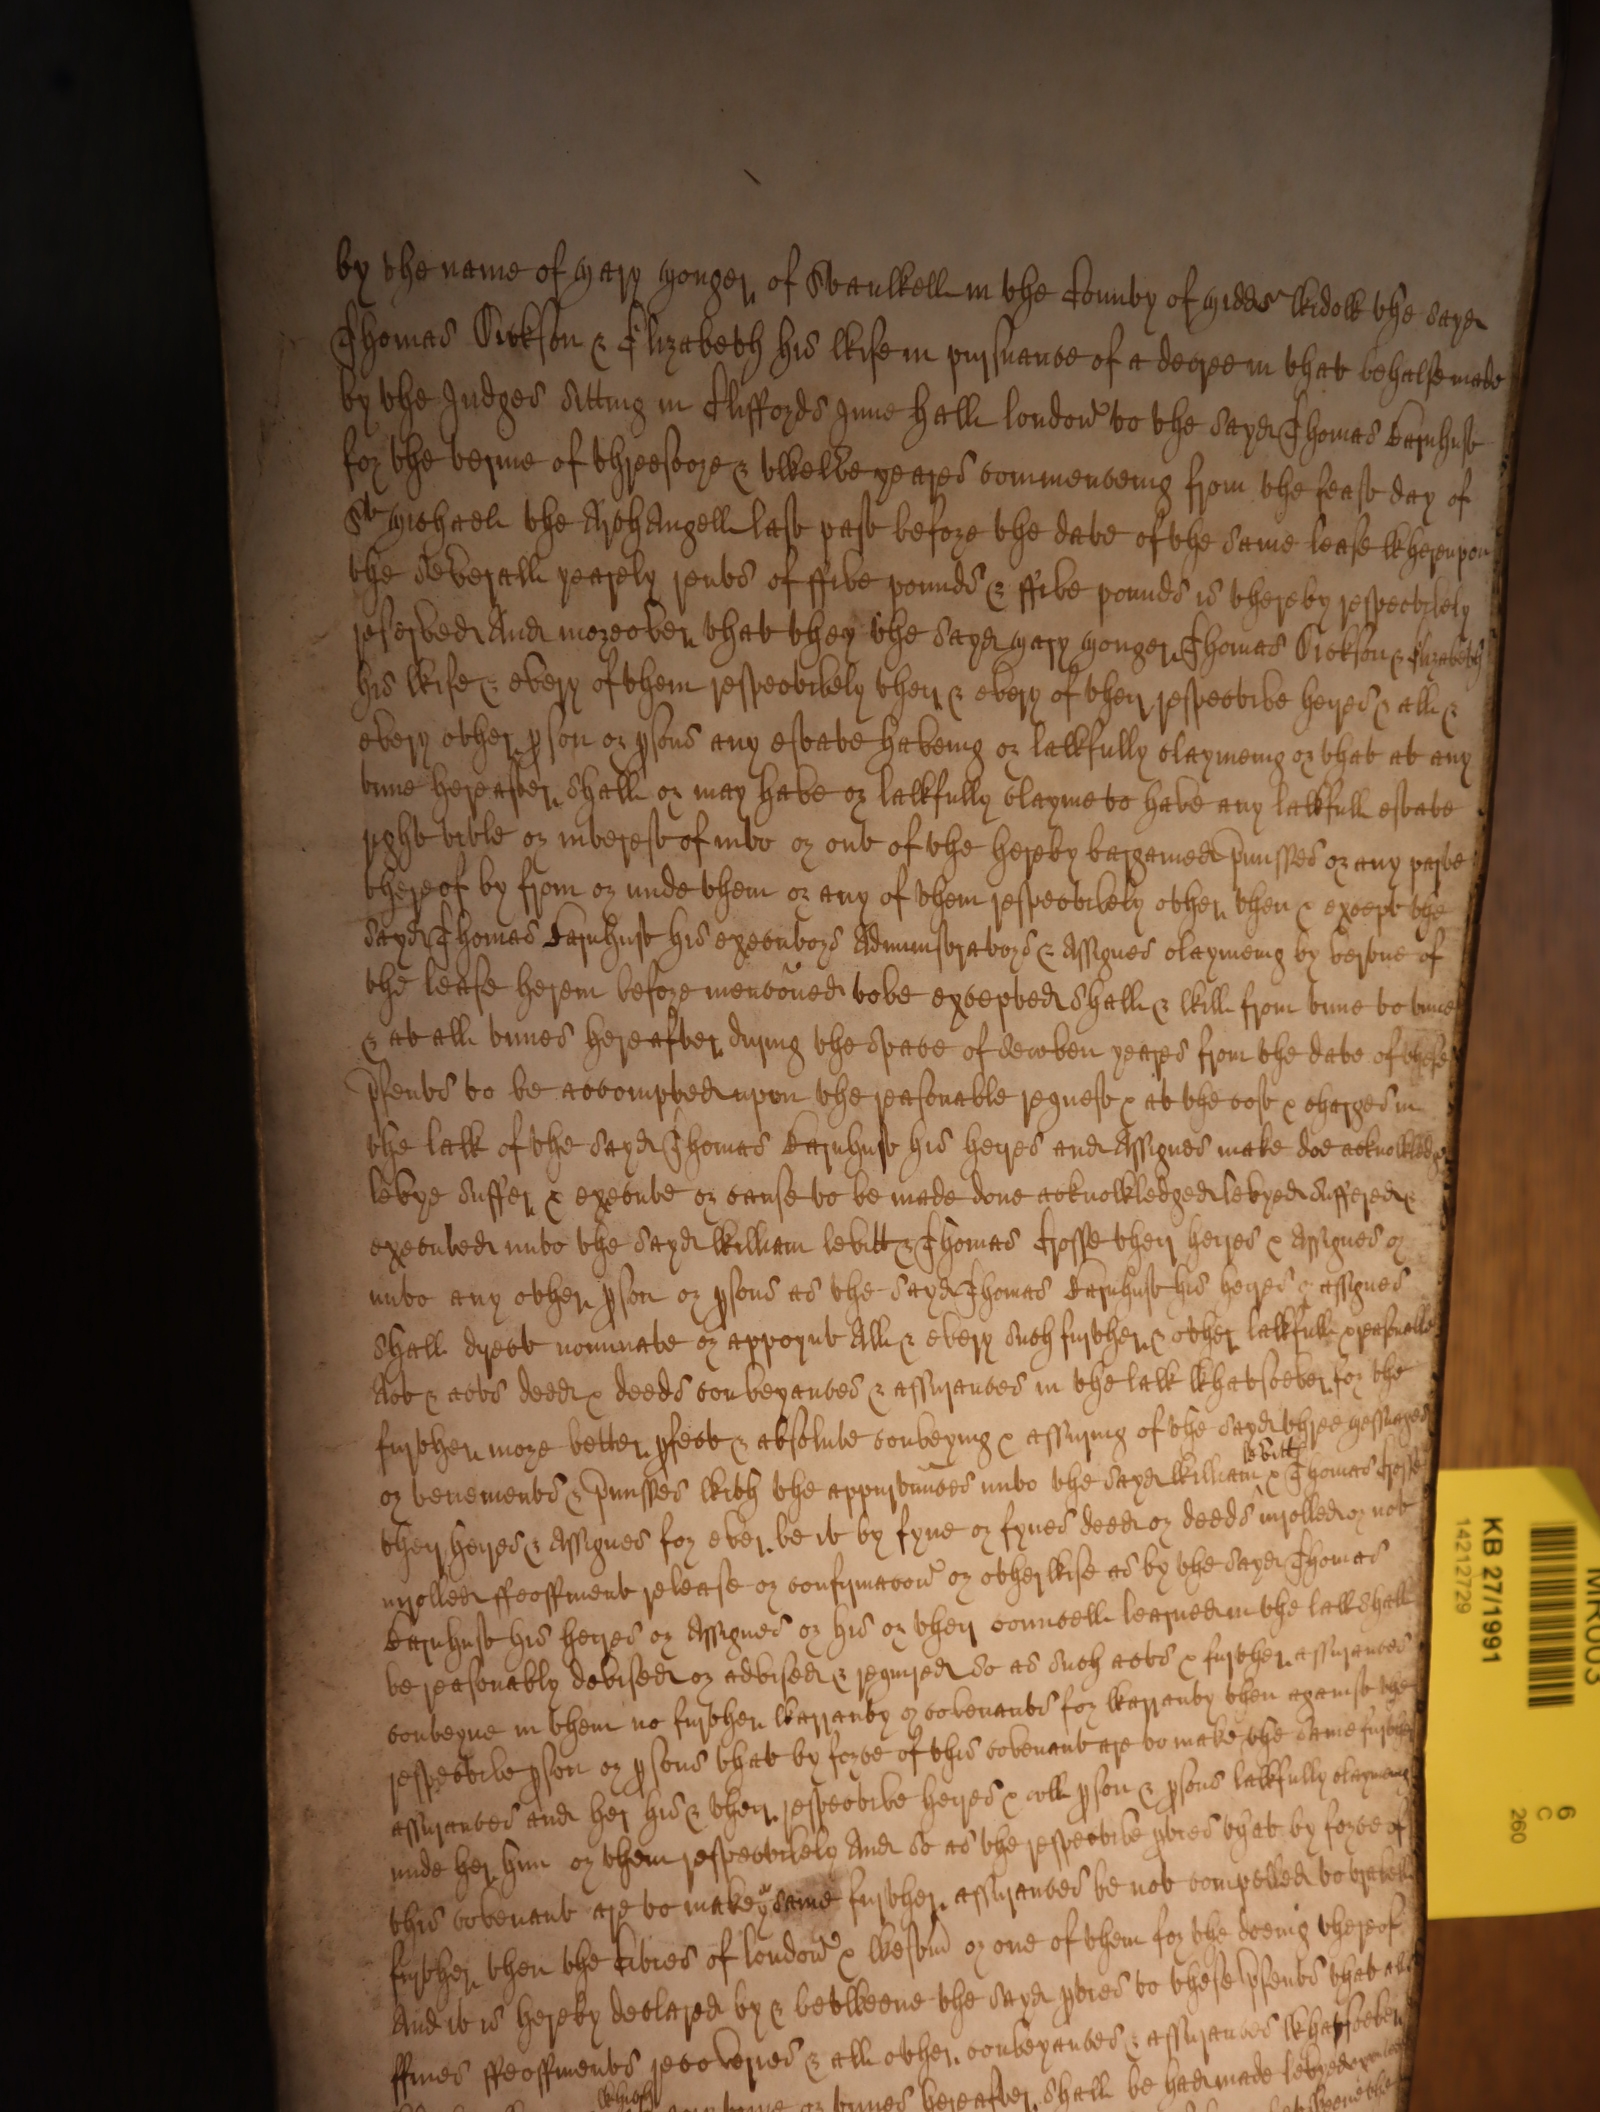 by the name of Mary Monger of Stanwell in the County of Midds Widow the sayd
Thomas Dickson & Elizabeth his wife in pursuance of a decree in that behalfe made
by the Judges sitting in Cliffords Inne hall london to the sayd Thomas Barnhust
for the terme of threescore & twelve yeares commenceing from the feast day of
St Michaell the Arch Angell last past before the date of the same lease whereupon
the severall yearely rents of ffive pounds & ffive pounds is thereby respectively
reserved And moreover that they the sayd Mary Monger Thomas Dickson & Elizabeth
his wife & every of them respectively their & every of their respective heires & all &
every other pson or psons any estate haveing or lawfully claymeing or that at any
time hereafter shall or may have or lawfully clayme to have any lawfull estate
right title or interest of into or out of the hereby bargained pmisses or any parte
thereof by from or unde them or any of them respectively other then & except the
sayd Thomas Barnhust his executors Administrators & Assignes claymeing by vertue of
the lease herein before menconed to be excepted shall & will from time to time
& at all times hereafter during the space of seaven yeares from the date of these
psents to be accompted upon the reasonable request & at the cost & charges in
the law of the sayd Thomas Barnhust his heires and Assignes make doe acknowledge
levye suffer & execute or cause to be made done acknowledged levyed suffered &
executed unto the sayd William levitt & Thomas Crosse their heires & Assignes or
unto any other pson or psons as the sayd Thomas Barnhust his heires or assignes
shall direct nominate or appoynt All & every such further & other lawfull & reasonable
Act & acts deed & deeds conveyances & assurances in the law whatsoever for the
further more better pfect & absolute conveying & assuring of the sayd three Messuages
or tenements & pmisses with the appurtnnces unto the sayd William levitt & Thomas Crosse
their heires & Assignes for ever be it by fyne or fynes deed or deeds inrolled or not
inrolled ffeoffment release or confirmacon or otherwise as by the sayd Thomas
Barnhust his heires or Assignes or his or their councell learned in the law shall
be reasonably devised or advised & required so as such acts & further assurances
conteyne in them no further warranty or covenants for warranty then against the
respective pson or psons that by force of this covenant are to make the same further
assurances and her his & their respective heires & all pson & psons lawfully claymeing
unde her him or them respectively And so as the respective pties that by force of
this covenant are to make ye same further assurances be not compelled to travell
further then the Cities of london & Westmr or one of them for the doeing thereof
And it is hereby declared by & betweene the sayd pties to these psents that all
ffines ffeoffments recoveries & all other conveyances & assurances whatsoever
which time or times hereafter shall be had made levyed